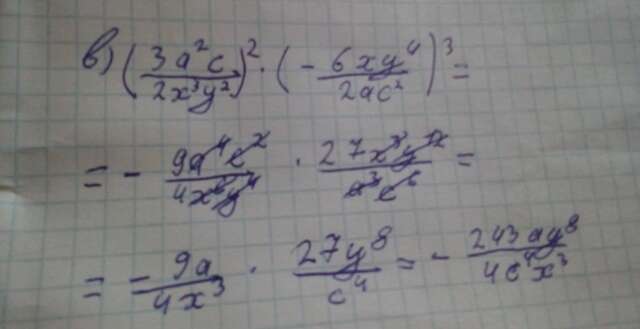 в) (3a²c / 2x³y²)² · (- 6xy⁴ / 2ac²)³ =
= - 9a⁴c² / 4x⁶y⁴ · 27x³y¹² / a³c⁶ =
= - 9a / 4x³ · 27y⁸ / c⁴ = - 243ay⁸ / 4c⁴x³